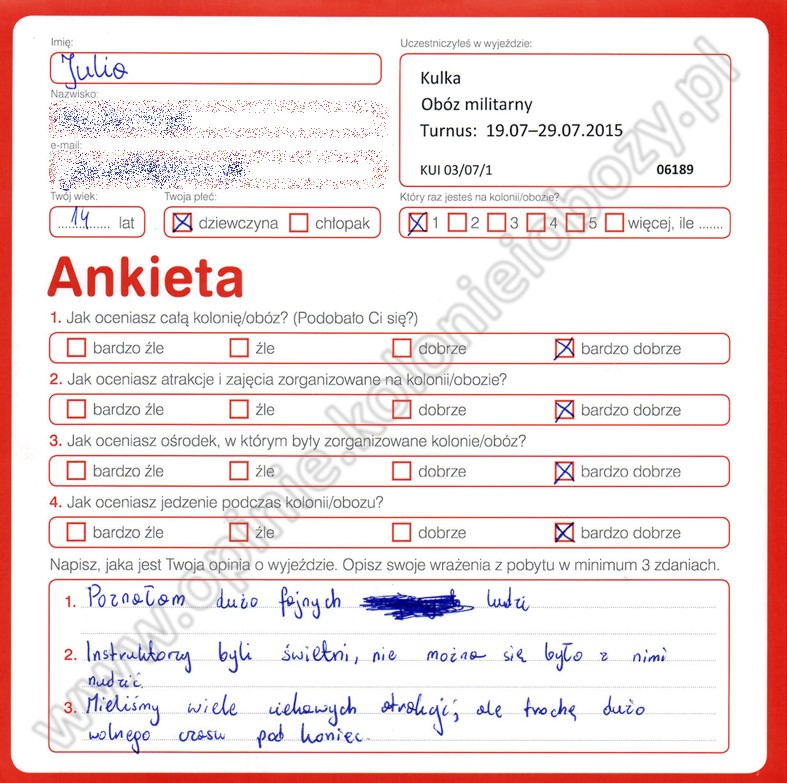 Imię:
Julia
Uczestniczyłeś w wyjeździe:
Kulka
Obóz militarny
Turnus: 19.07–29.07.2015
KUI 03/07/1 06189
Nazwisko:
e-mail:
Twój wiek: Twoja płeć: Który raz jesteś na kolonii/obozie?
14 lat dziewczyna chłopak 1 2 3 4 5 więcej, ile .......
Ankieta
1. Jak oceniasz całą kolonię/obóz? (Podobało Ci się?)
bardzo źle źle dobrze bardzo dobrze
2. Jak oceniasz atrakcje i zajęcia zorganizowane na kolonii/obozie?
bardzo źle źle dobrze bardzo dobrze
3. Jak oceniasz ośrodek, w którym były zorganizowane kolonie/obóz?
bardzo źle źle dobrze bardzo dobrze
4. Jak oceniasz jedzenie podczas kolonii/obozu?
bardzo źle źle dobrze bardzo dobrze
Napisz, jaka jest Twoja opinia o wyjeździe. Opisz swoje wrażenia z pobytu w minimum 3 zdaniach.
1. Poznałam dużo fajnych ludzi
2. Instruktorzy byli świetni, nie można się było z nimi
nudzić.
3. Mieliśmy wiele ciekawych atrakcji, ale trochę dużo
wolnego czasu pod koniec.
www.opinie.kolonieiobozy.pl